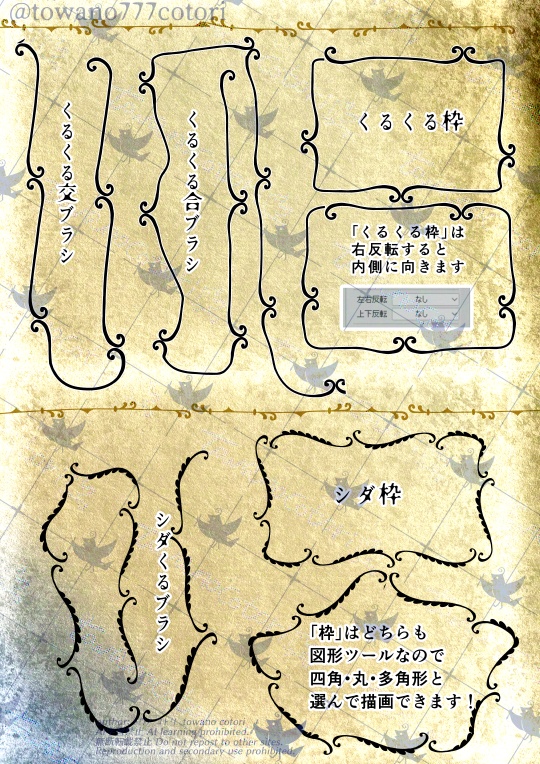 @towano777cotori
くるくる交ブラシ
くるくる合ブラシ
くるくる枠
「くるくる枠」は
右反転すると
内側に向きます
左右反転 なし
上下反転 なし
シダくるブラシ
シダ枠
「枠」はどちらも
図形ツールなので
四角・丸・多角形と
選んで描画できます！
towano cotori
AI learning prohibited.
無断転載禁止 Do not repost to other sites.
Reproduction and secondary use prohibited.